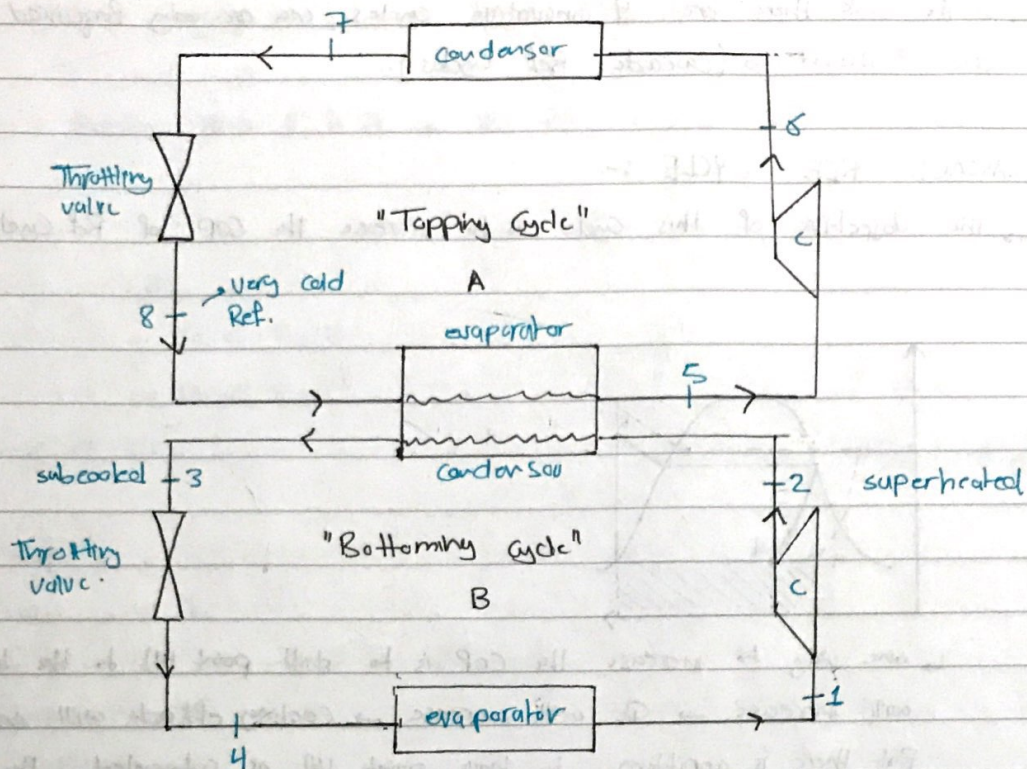 7
condensor
6
Throttling
valve
"Topping Cycle"
C
A
very cold
Ref.
8
evaporator
5
condensor
subcooled
3
2
superheated
Throttling
valve.
"Bottoming cycle"
C
B
evaporator
1
4